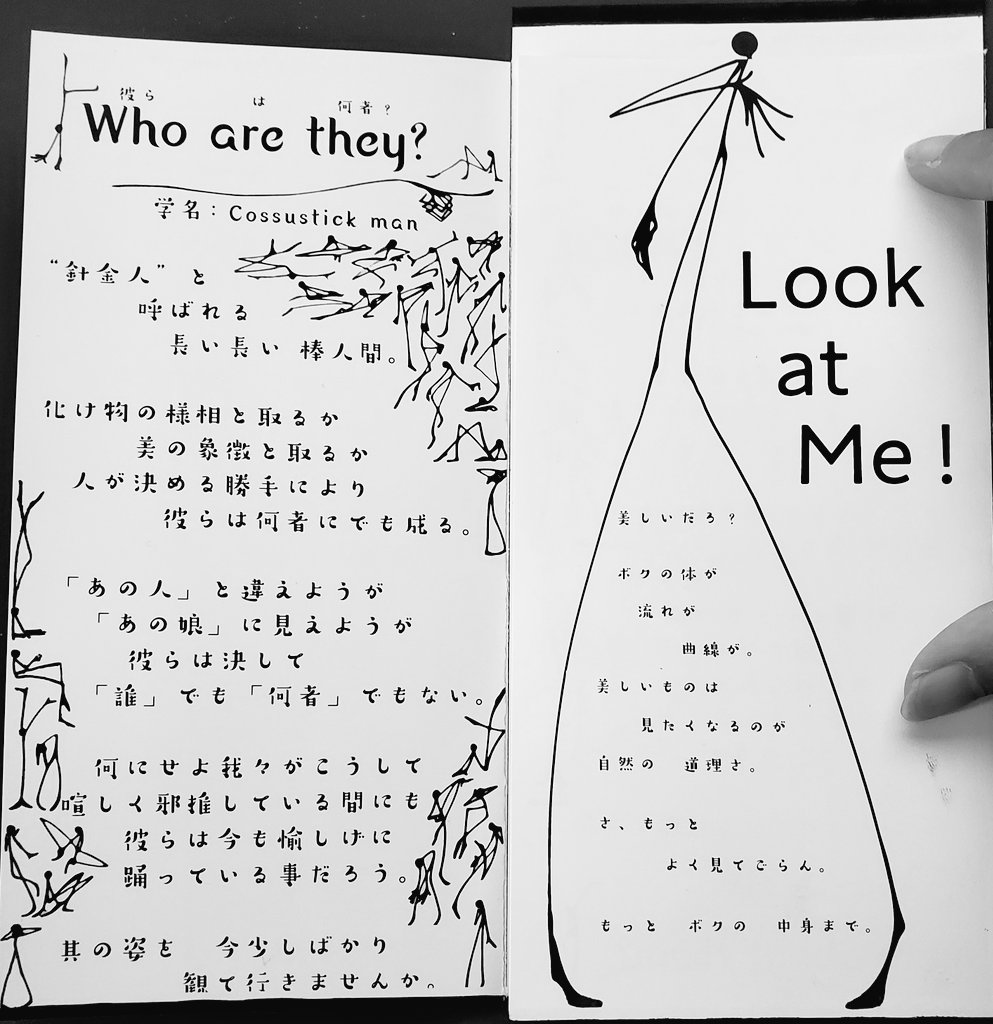 彼ら は 何者？
Who are they?
学名：Cossustick man
“針金人” と
呼ばれる
長い長い 棒人間。
化け物の様相と取るか
美の象徴と取るか
人が決める勝手により
彼らは何者にでも成る。
「あの人」と違えようが
「あの娘」に見えようが
彼らは決して
「誰」でも「何者」でもない。
何にせよ我々がこうして
喧しく邪推している間にも
彼らは今も愉しげに
踊っている事だろう。
其の姿を 今少しばかり
観て行きませんか。
Look
at
Me!
美しいだろ？
ボクの体が
流れが
曲線が。
美しいものは
見たくなるのが
自然の 道理さ。
さ、もっと
よく見てごらん。
もっと ボクの 中身まで。